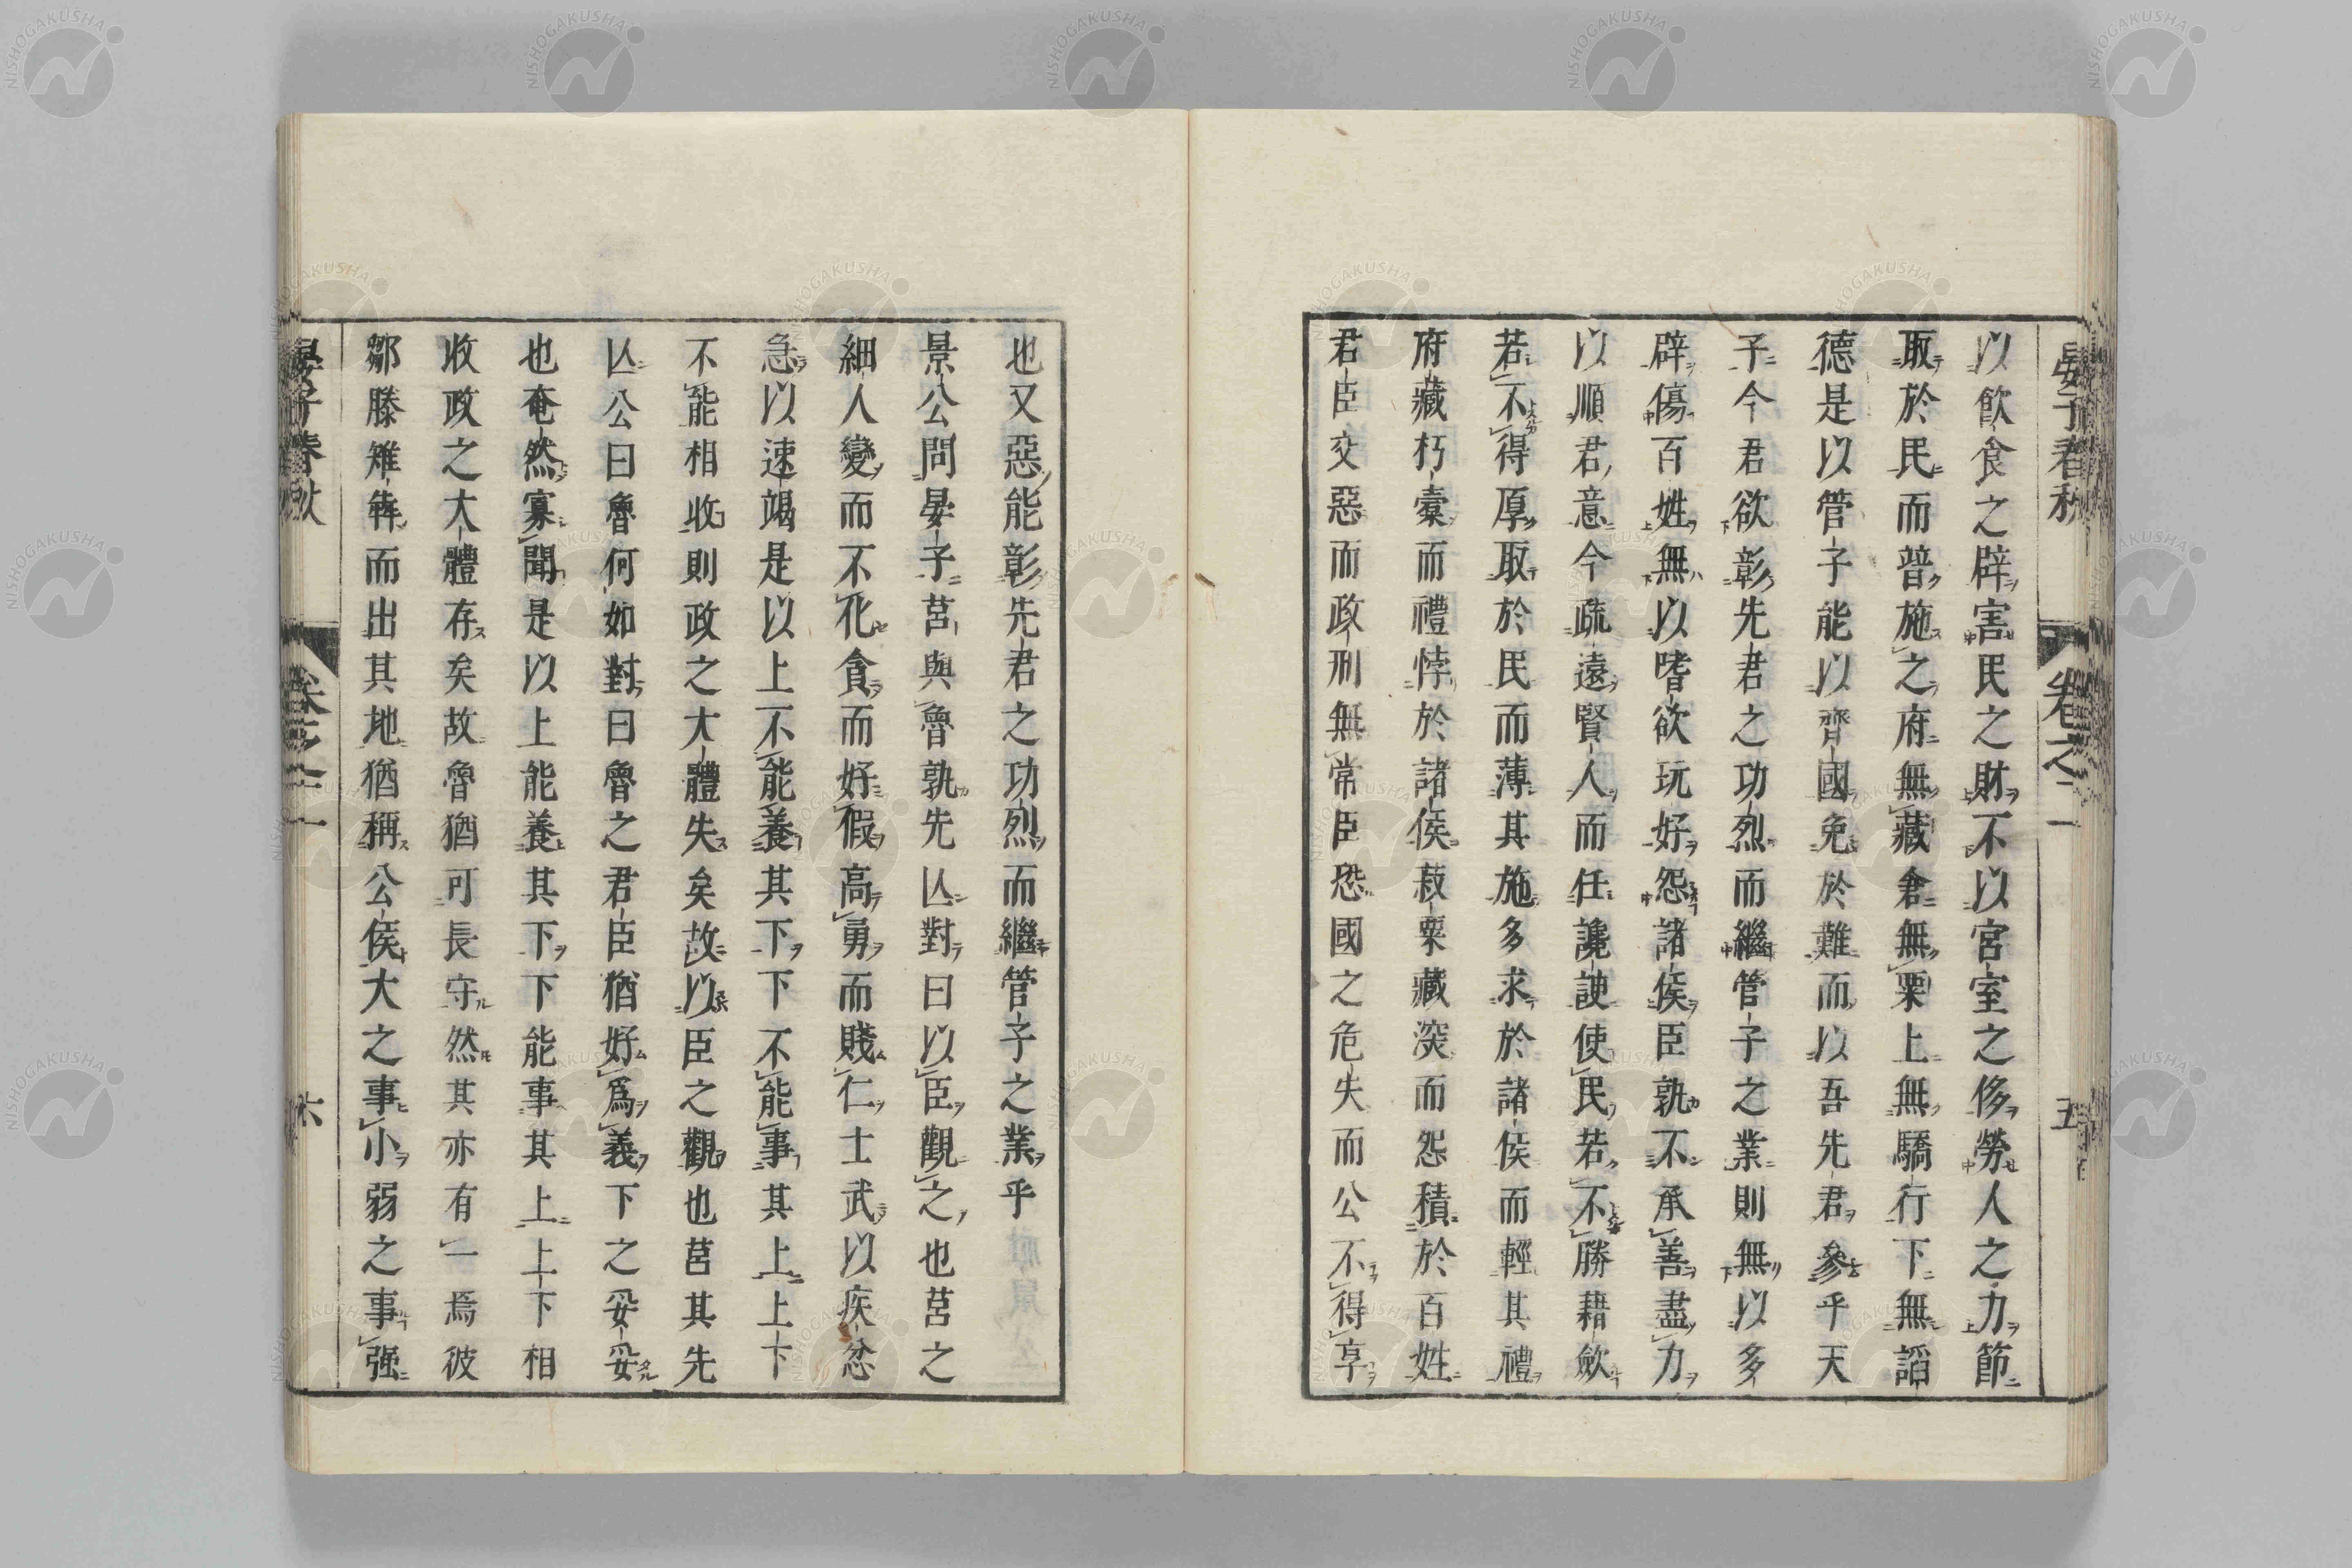 晏子春秋 卷之二 五
以飲食之辟害民之財不以宮室之侈勞人之力節
取於民而普施之府無藏倉無粟上無驕行下無諂
德是以管子能以齊國免於難而以吾先君參乎天
子今君欲彰先君之功烈而繼管子之業則無以多
辟傷百姓無以嗜欲玩好怨諸侯臣孰不承善盡力
以順君意今疏遠賢人而任讒諛使民若不勝藉斂
若不得厚取於民而薄其施多求於諸侯而輕其禮
府藏朽蠹而禮悖於諸侯菽粟藏深而怨積於百姓
君臣交惡而政刑無常臣恐國之危失而公不得享
也又惡能彰先君之功烈而繼管子之業乎
景公問晏子莒與魯孰先亾對曰以臣觀之也莒之
細人變而不化貪而好假高勇而賤仁士武以疾忿
急以速竭是以上不能養其下下不能事其上上下
不能相收則政之大體失矣故以臣之觀也莒其先
亾公曰魯何如對曰魯之君臣猶好爲義下之妥妥
也奄然寡聞是以上能養其下下能事其上上下相
收政之大體存矣故魯猶可長守然其亦有一焉彼
鄒滕雉犇而出其地猶稱公侯大之事小弱之事强
晏子春秋 卷之二 六
NISHOGAKUSHA